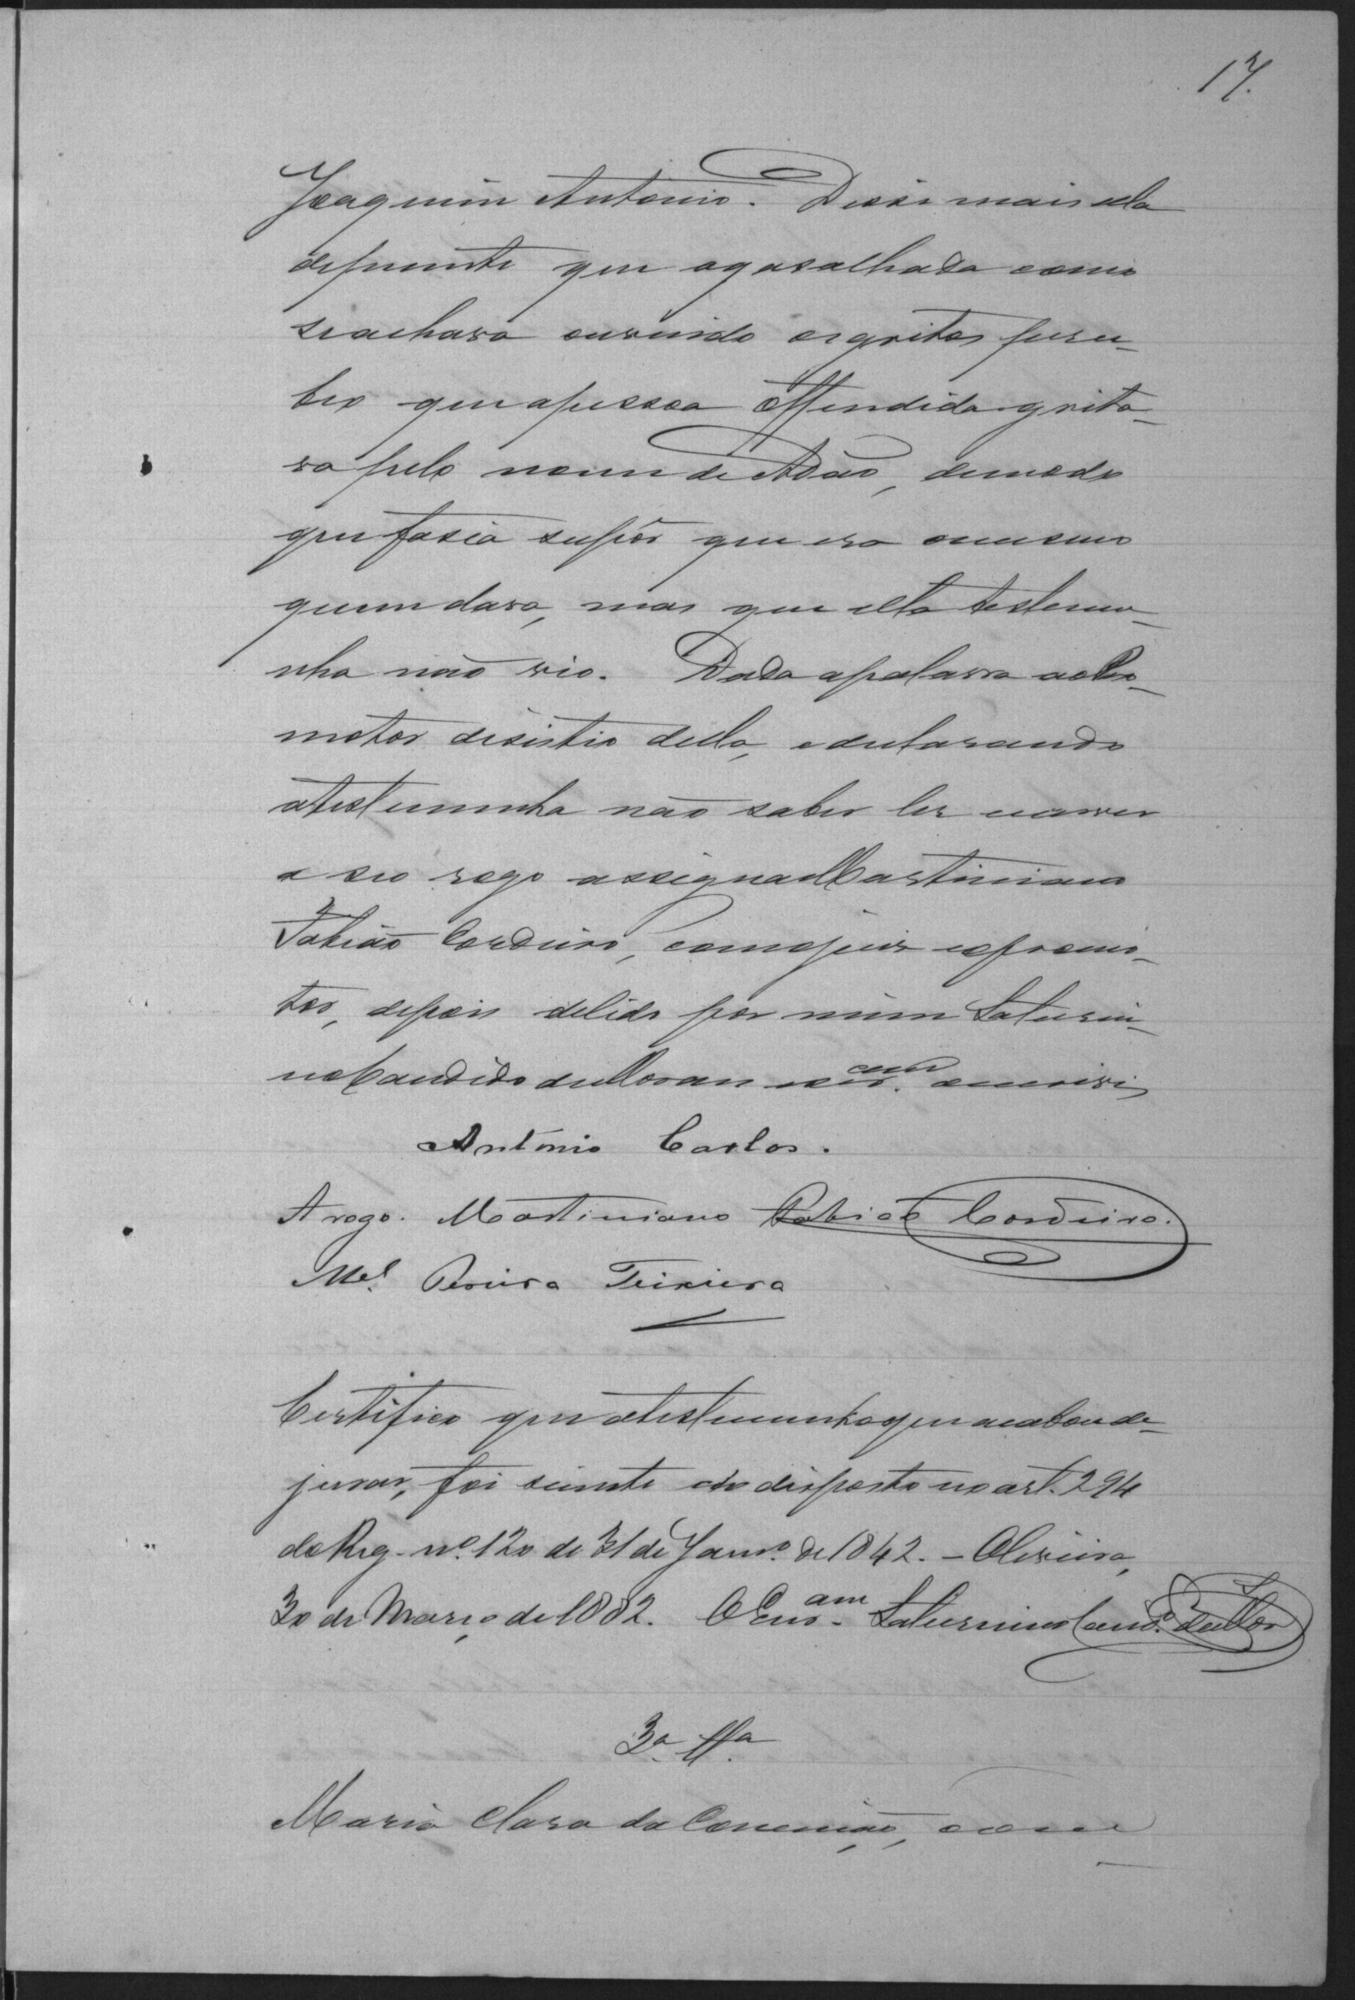 17.
Joaquim Antonio. Disse mais ella
depoente que agasalhada como
se achava ouvindo os gritos perce-
beo que a pessoa offendida grita-
va pelo nome de Adão, de modo
que fasia supôr que era o mesmo
quem dava, mas que ella testemu-
nha não vio. Dada a palavra ao Pro-
motor desistio della, e declarando
a testemunha não saber ler e escrever
a seo rogo assigna Martiniano
Fabião Cordeiro, com o juis e o promo-
tor, depois de lido por mim Saturni-
no Candido de Moraes escr.am o escrivi
Antonio Carlos.
A rogo. Martiniano Fabião Cordeiro.
Mel. Pereira Teixiera
Certifico que a testemunha que acabou de
jurar, foi sciente do disposto no art. 294
do Reg. nº. 120 de 31 de Janrº. de 1842. – Oliveira,
30 de Março de 1882. O Escr.am Saturnino Cand.º de Mor
3ª. Tª.
Maria Clara da Conceição, com